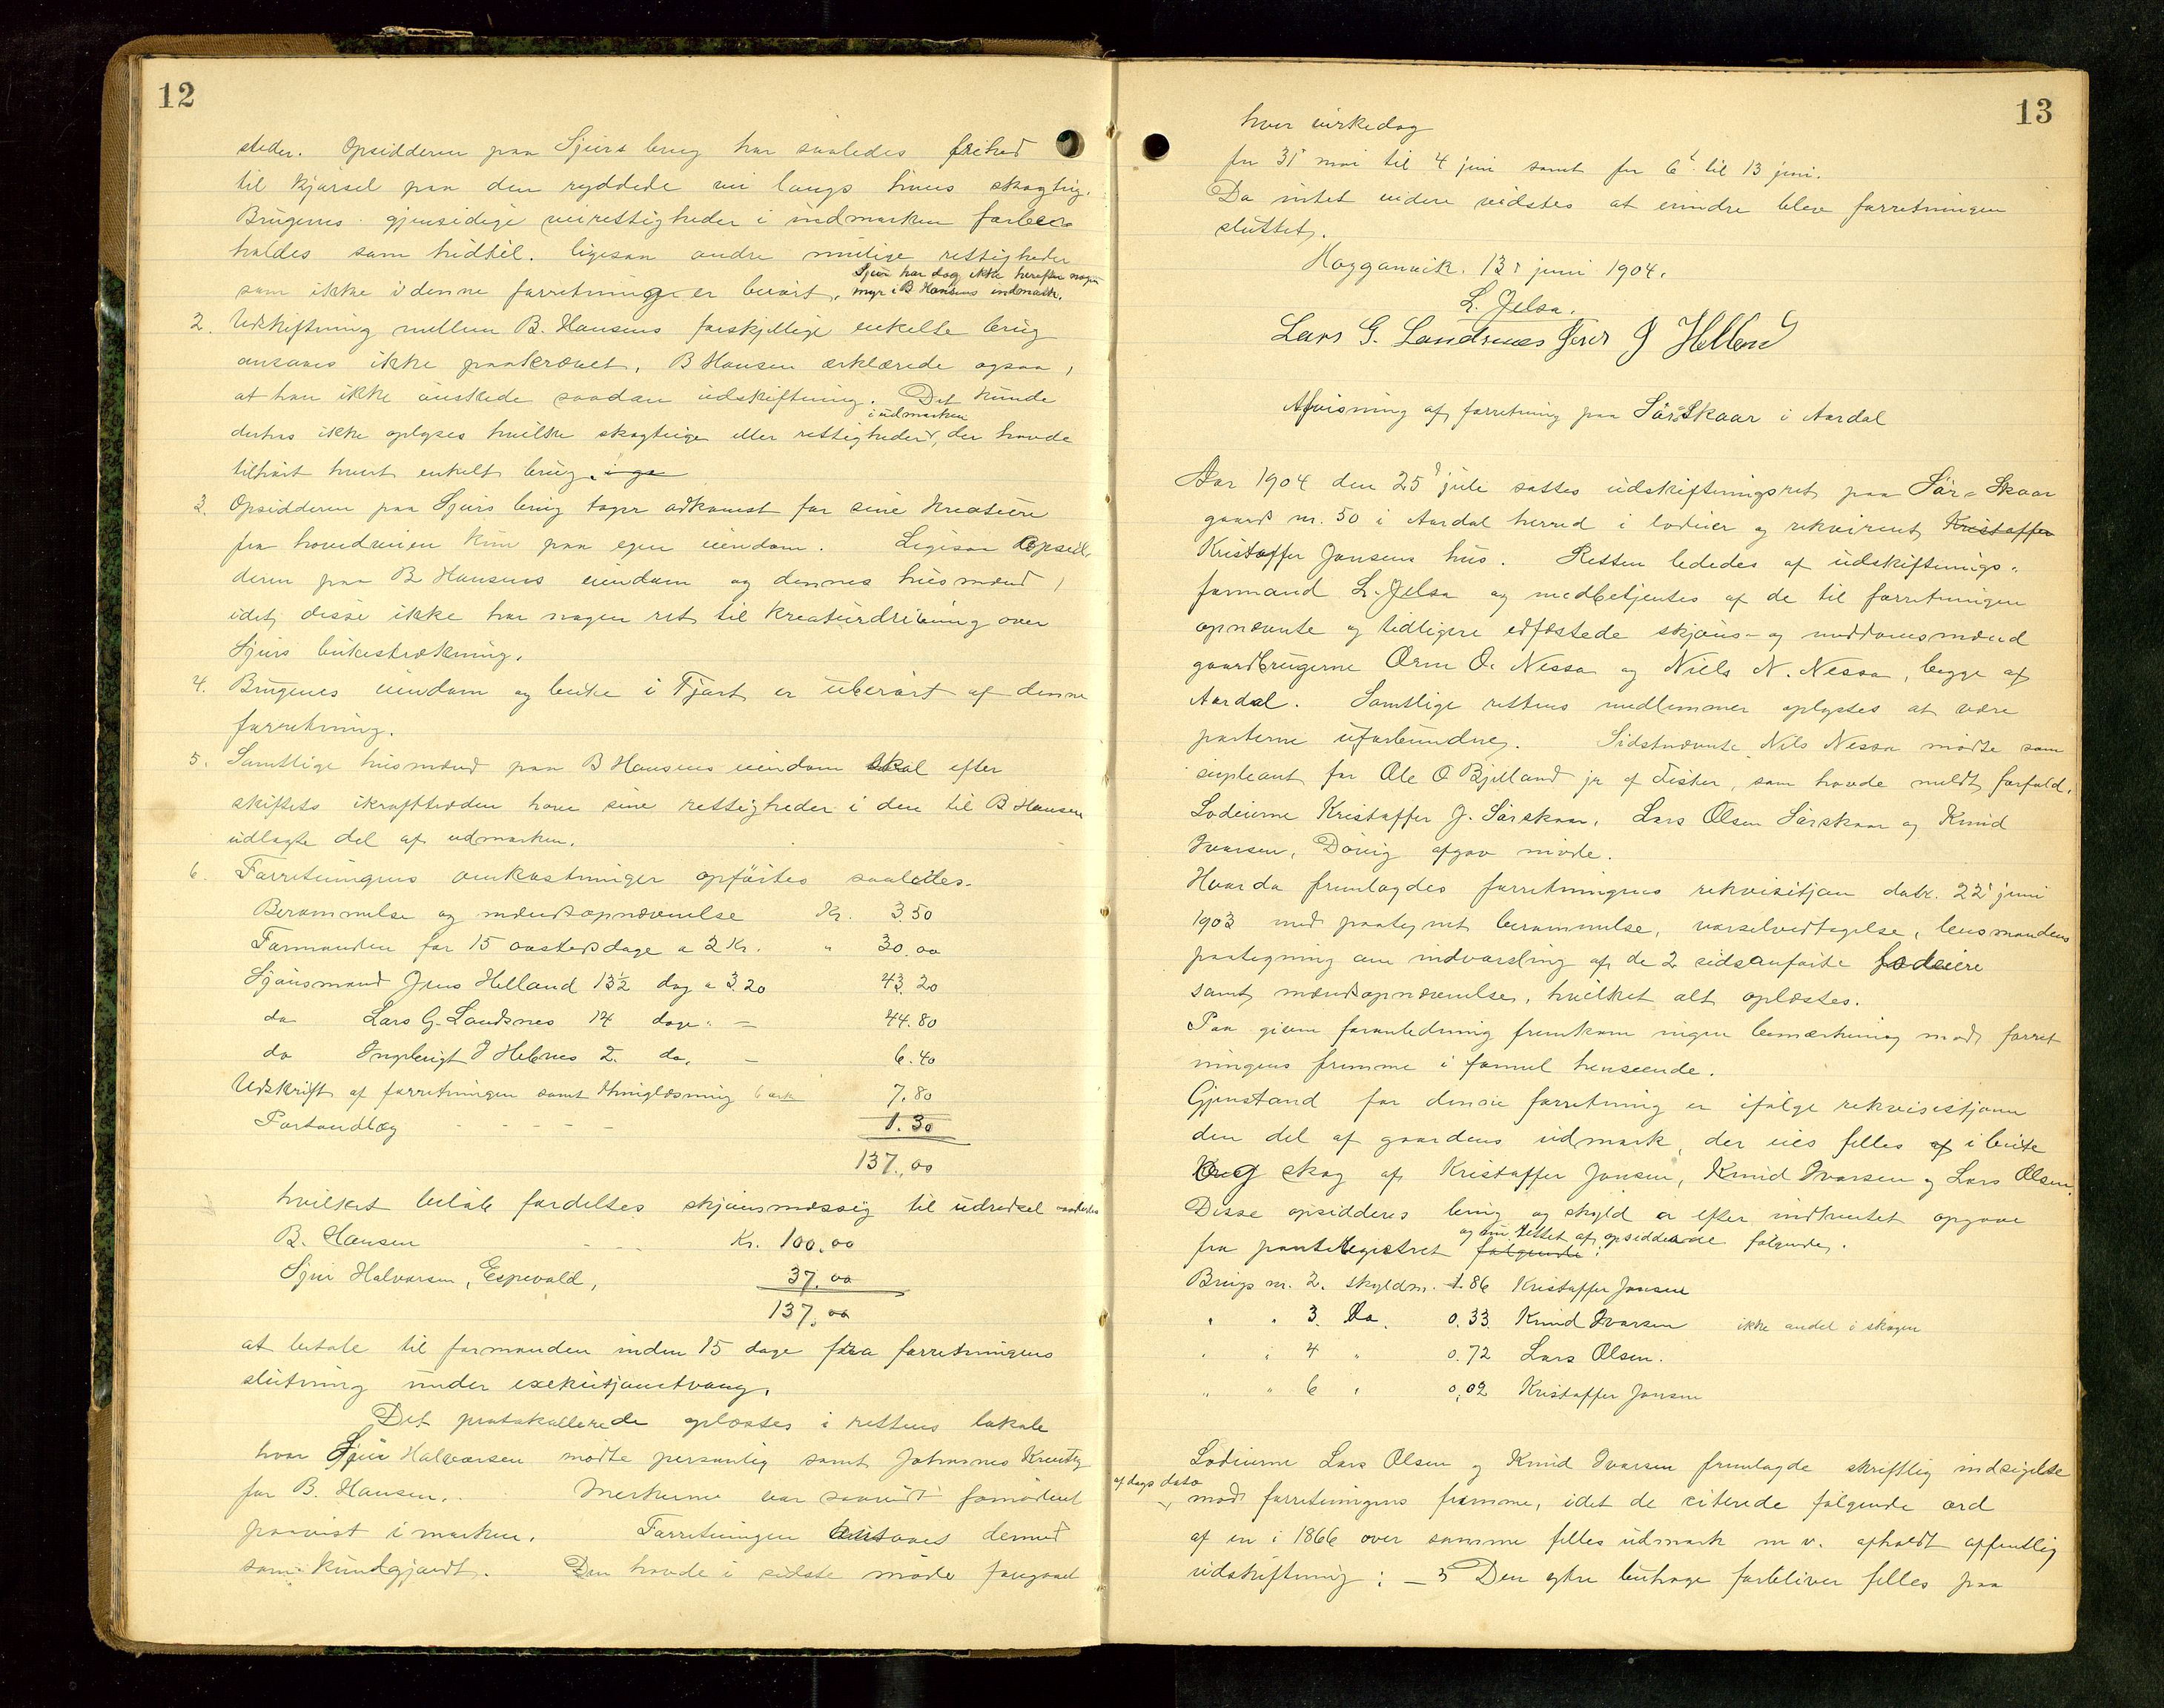 12
steder. Opsidderen paa Sjurs brug har saaledes frihed
til kjørsel paa den ryddede vei langs hans skogteig.
Brugenes gjensidige veirettigheder i indmarken forbe-
holdes som hidtil. ligesaa andre mulige rettigheder
Sjur har dog ikke herefter nogen
som ikke i denne forretning er berørt. myr i B Hansens indmark.
2. Udskiftning mellem B. Hansens forskjellige enkelte brug
ansaaes ikke paakrævet, B Hansen erklærede ogsaa,
at han ikke ønskede saadan udskiftning. Det kunde
i udmarken
derhos ikke oplyses hvilke skogteige eller rettigheder, der havde
tilhørt hvert enkelt brug. i ga
3. Opsidderen paa Sjurs brug tager adkomst for sine kreature
fra hovedveien kun paa egen eiendom. Ligesaa Opsid-
deren paa B Hansens eiendom og dennes husmænd,
idet disse ikke har nogen ret til kreaturdrivning over
Sjurs beitestrækning.
4. Brugenes eiendom og beite i Fjart er uberørt af denne
forretning.
5. Samtlige husmænd paa B Hansens eiendom skal efter
skiftets ikrafttræden have sine rettigheder i den til B Hansen
udlagte del af udmarken.
6. Forretningens omkostninger opførtes saaledes.
Berammelse og mændsopnævnelse Kr. 3.50
Formanden for 15 arbeidsdage a 2 Kr. " 30.00
Skjønsmand Jens Helland 13½ dag a 3.20 43.20
do Lars G. Landsnes 14 dage " — 44.80
do Ingebrigt J Hebnes 2 do. — 6.40
Udskrift af forretningen samt thinglæsning 6 ark 7.80
Portoudlæg - - - - - 1.30
137.00
hvilket beløb fordeltes skjønsmæssig til udredsel saaledes
B. Hansen - - - Kr. 100.00
Sjur Halvorsen, Espevold, 37.00
137.00
at betale til formanden inden 15 dage fra forretningens
slutning under exekutjonstvang.
Det protokollerede oplæstes i rettens lokale
hvor Sjur Halvorsen mødte personlig samt Johannes
for B. Hansen. Merkerne var saavidt fornødent
paavist i marken. Forretningen ansaaes dermed
som kundgjordt. Den havde i sidste møde foregaaet
13
hver virkedag
fra 31' mai til 4 juni samt fra 6' til 13 juni.
Da intet videre vidstes at erindre blev forretningen
sluttet.
Hogganvik. 13' juni 1904.
L. Jelsa.
Lars G. Landsnes Jens J Helland
Afvisning af forretning paa Sør-Skaar i Aardal
Aar 1904 den 25' juli sattes udskiftningsret paa Sør-Skaar
gaards nr. 50 i Aardal herred i lodeier og rekvirent Kristoffer
Kristoffer Jonsens hus. Retten lededes af udskiftnings-
formand L. Jelsa og medbetjentes af de til forretningen
opnævnte og tidligere edfæstede skjøns- og meddomsmænd
gaardbrugerne Orm O. Nessa og Niels N. Nessa, begge af
Aardal. Samtlige rettens medlemmer oplystes at være
parterne uforbundne. Sidstnævnte Nils Nessa mødte som
supleant for Ole O Bjelland jr af Fister, som havde meldt forfald.
Lodeierne Kristoffer J. Sørskaar, Lars Olsen Sørskaar og Knud
Ivarsen, afgav møde.
Hvorda fremlagdes forretningens rekvisitjon datr. 22' juni
1903 med paategnet berammelse, varselvedtagelse, lensmandens
paategning om indvarsling af de 2 sidsanførte lodeiere
samt mændsopnævnelse, hvilket alt oplæstes.
Paa given foranledning fremkom ingen bemærkning mod forret
ningens fremme i formel henseende.
Gjenstand for denne forretning er ifølge rekvisitjonen
den del af gaardens udmark, der eies felles af i beite
og skog af Kristoffer Jonsen, Knud Ivarsen og Lars Olsen.
Disse opsidderes brug og skyld er efter indhentet opgave
og rettet af opsidderne følgende.
fra panteregistret følgende:
Brugs nr. 2. skyldm. 1.86 Kristoffer Jonsen
" " 3. Do. 0.33 Knud Ivarsen ikke andel i skogen
" " 4 " 0.72 Lars Olsen.
" " 6 " 0.02 Kristoffer Jonsen
Lodeierne Lars Olsen og Knud Ivarsen fremlagde skriftlig indsigelse
af dags dato
mod forretningens fremme, idet de citerede følgende ord
af en i 1866 over samme felles udmark m v. afholdt offentlig
udskiftning: — Den ytre beithage forbliver felles paa